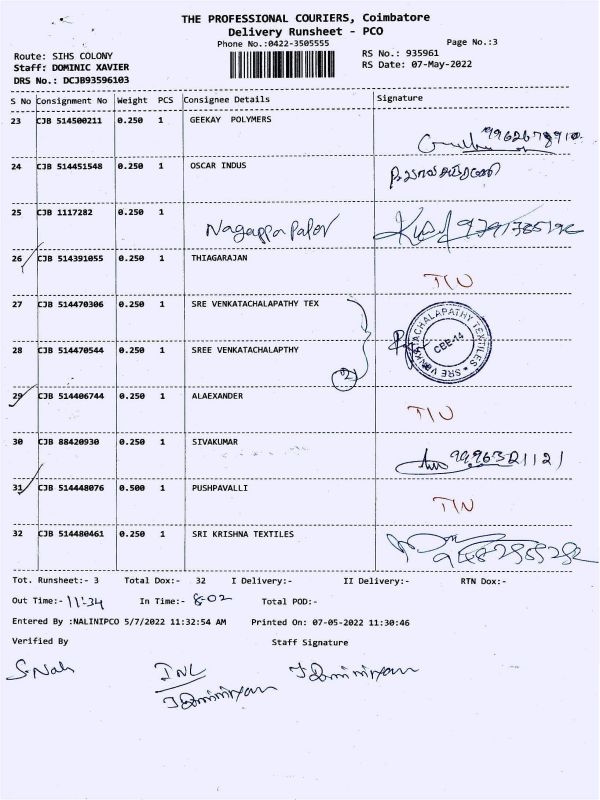 THE PROFESSIONAL COURIERS, Coimbatore
Delivery Runsheet - PCO
Phone No.:0422-3505555
Page No.:3
Route: SIHS COLONY
Staff: DOMINIC XAVIER
DRS No.: DCJB93596103
RS No.: 935961
RS Date: 07-May-2022
S No Consignment No Weight PCS Consignee Details Signature
23 CJB 514500211 0.250 1 GEEKAY POLYMERS
24 CJB 514451548 0.250 1 OSCAR INDUS
25 CJB 1117282 0.250 1
26 CJB 514391055 0.250 1 THIAGARAJAN
27 CJB 514470306 0.250 1 SRE VENKATACHALAPATHY TEX
SRE VENKATACHALAPATHY TEXTILES
CBE-14
28 CJB 514470544 0.250 1 SREE VENKATACHALAPTHY
29 CJB 514406744 0.250 1 ALAEXANDER
30 CJB 88420930 0.250 1 SIVAKUMAR 9996321121
31 CJB 514448076 0.500 1 PUSHPAVALLI
32 CJB 514480461 0.250 1 SRI KRISHNA TEXTILES
Tot. Runsheet:- 3 Total Dox:- 32 I Delivery:- II Delivery:- RTN Dox:-
Out Time:- 11:34 In Time:- 8-02 Total POD:-
Entered By :NALINIPCO 5/7/2022 11:32:54 AM Printed On: 07-05-2022 11:30:46
Verified By Staff Signature